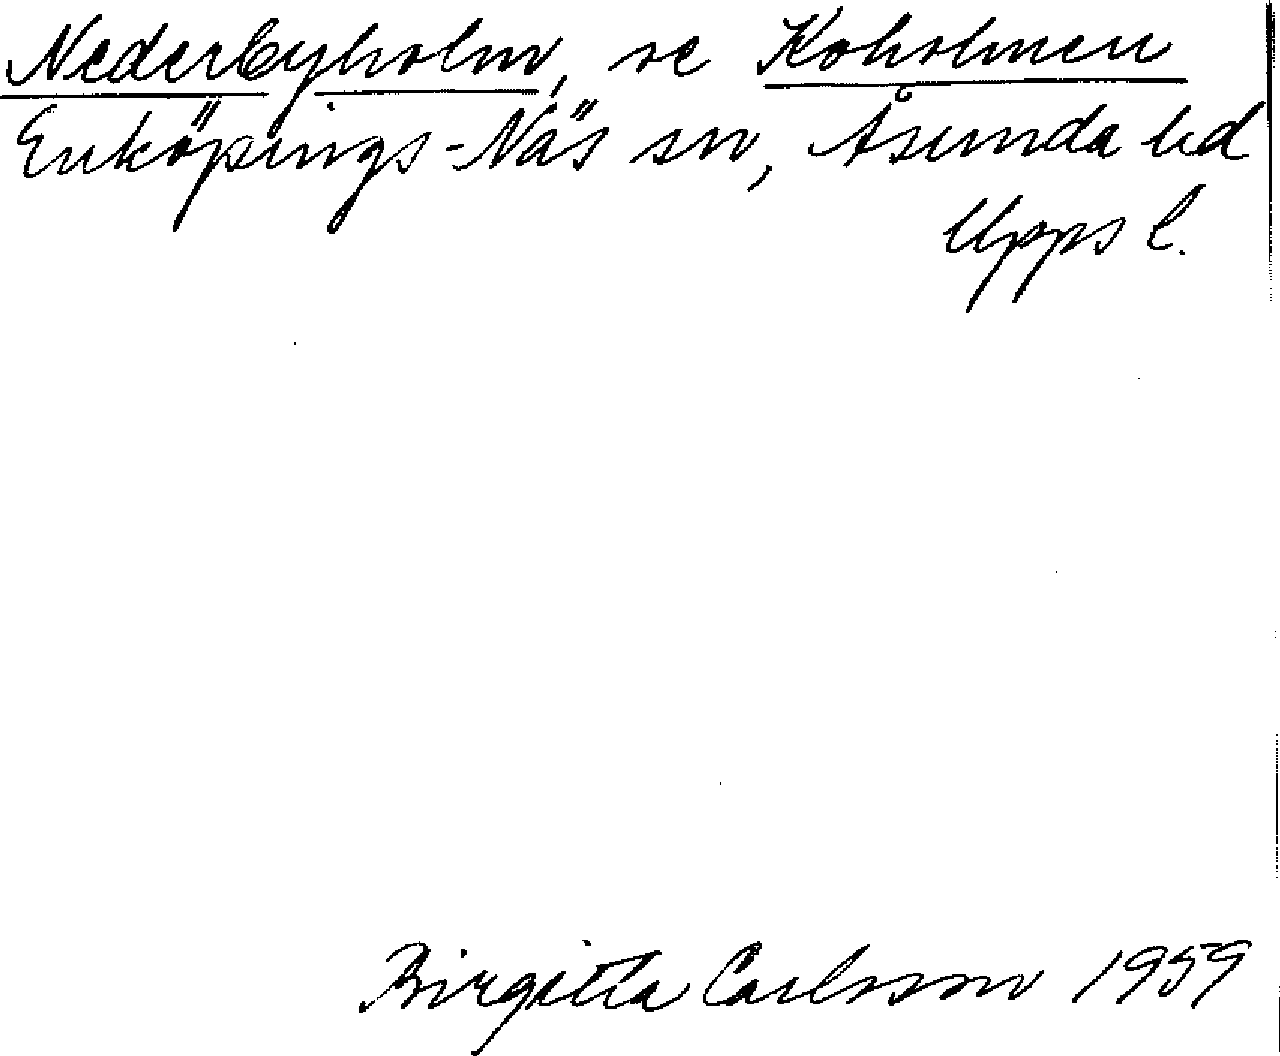 Nederbyholm, se Koholmen
Enköpings-Näs sn, Åsunda hd
Upps l.
Birgitta Carlsson 1959